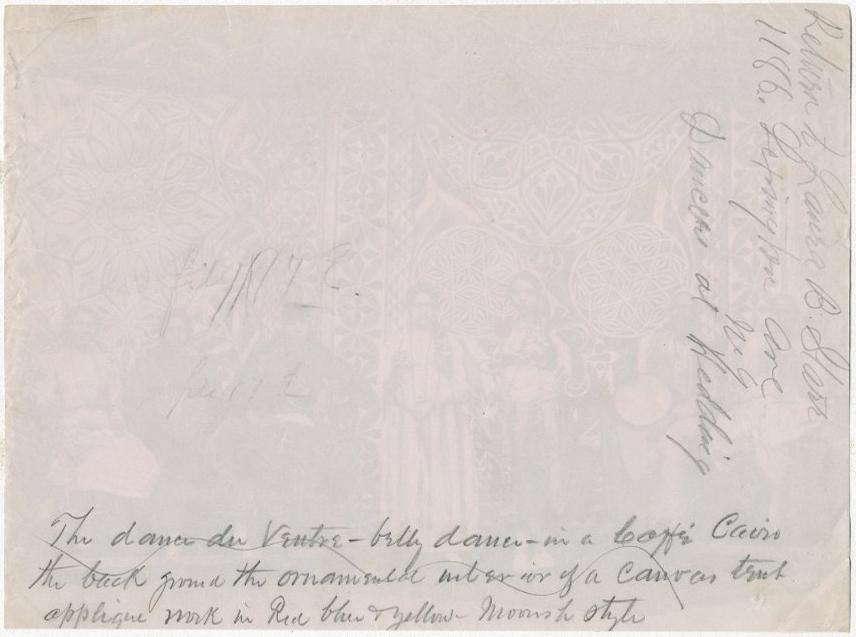 Return to Laura B. Starr
1186. Lexington Ave
N.Y
Dancers at Wedding
file 1817 E.
file 17 E
The dance du Ventre - belly dance - in a Coffé Cairo
the back ground the ornamented interior of a Canvas tent
applique work in Red blue & yellow - Moorish style